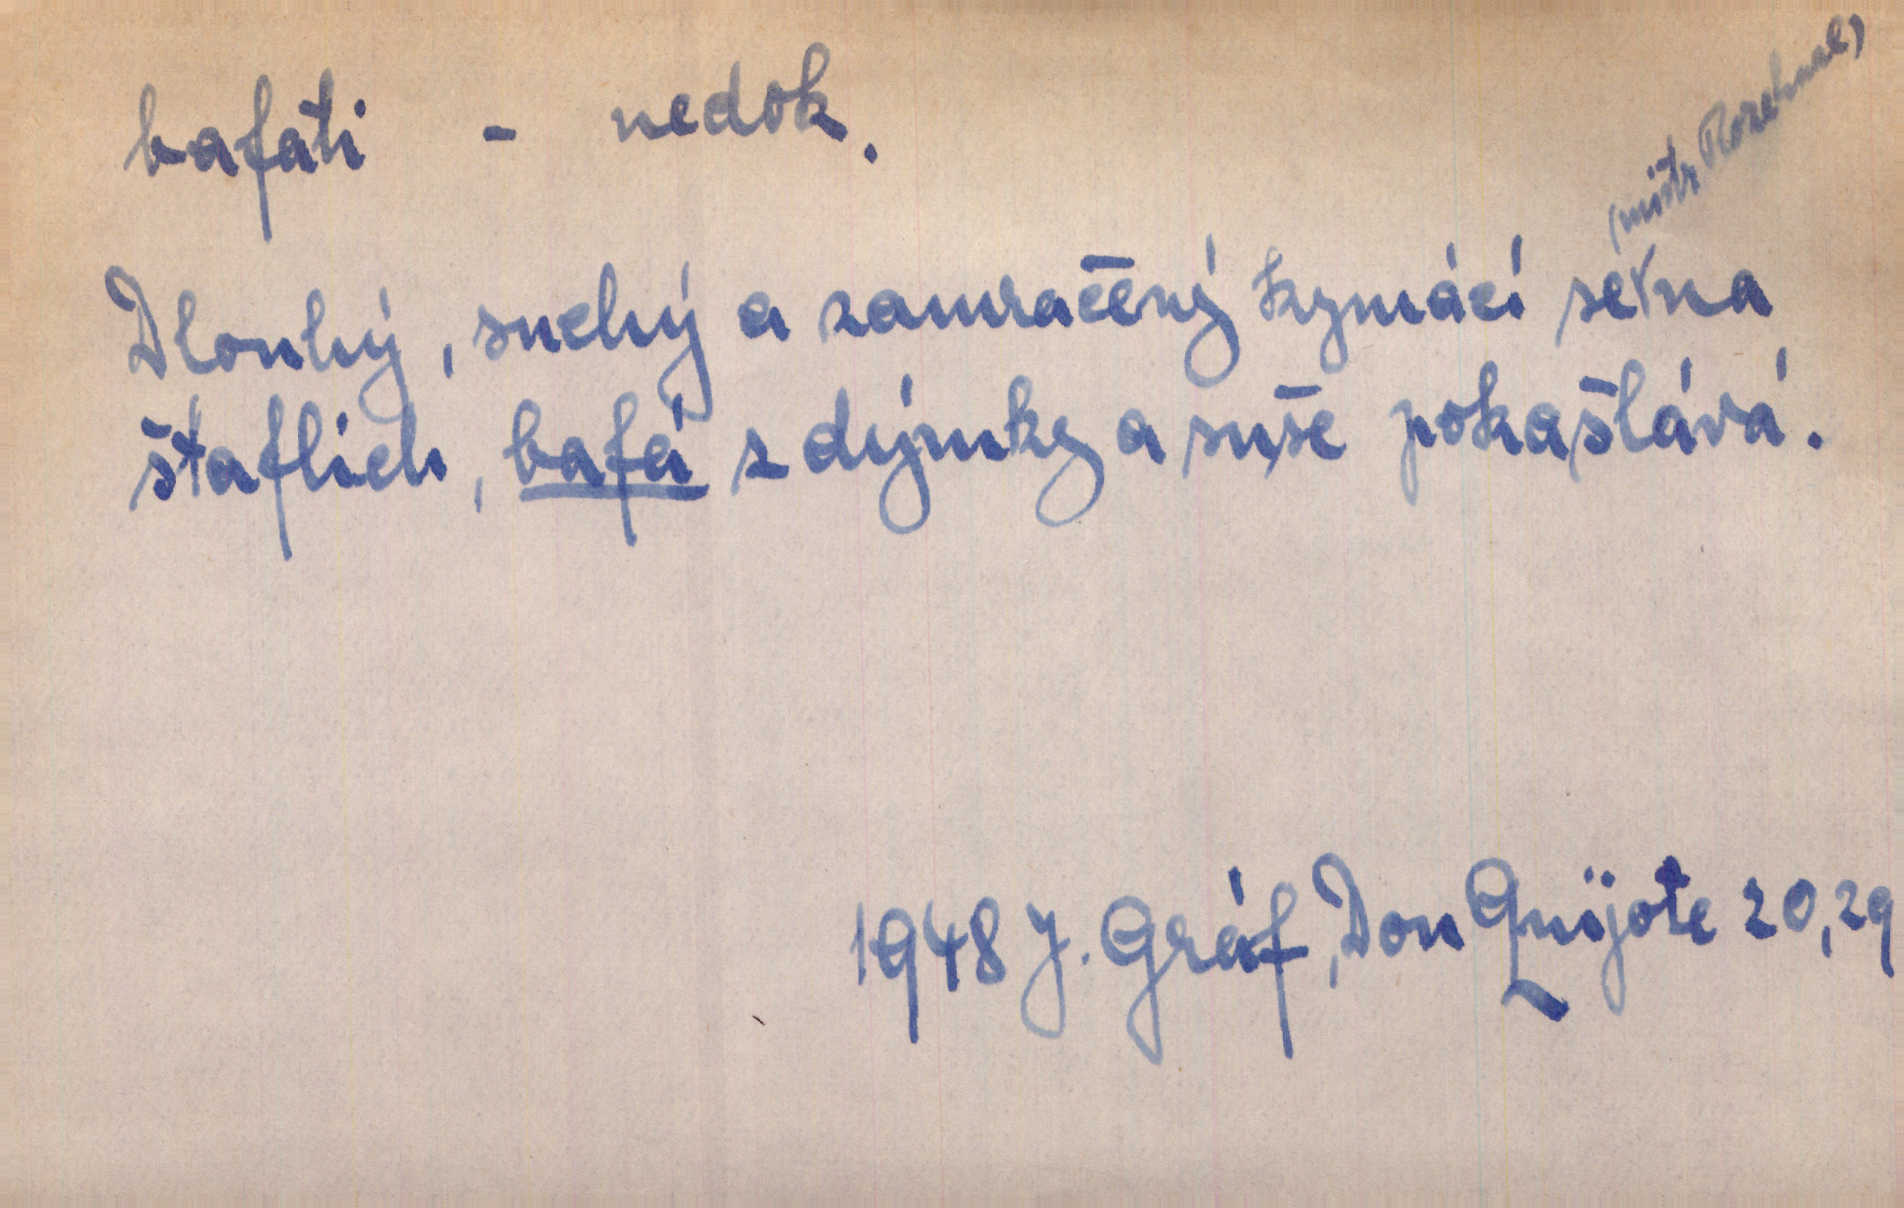 bafati - nedok.
(mistr Rozehnal)
Dlouhý, suchý a zamračený kymácí se na
štaflích, bafá z dýmky a suše pokašlává.
1948 J. Gráf, Don Quijote 20,29